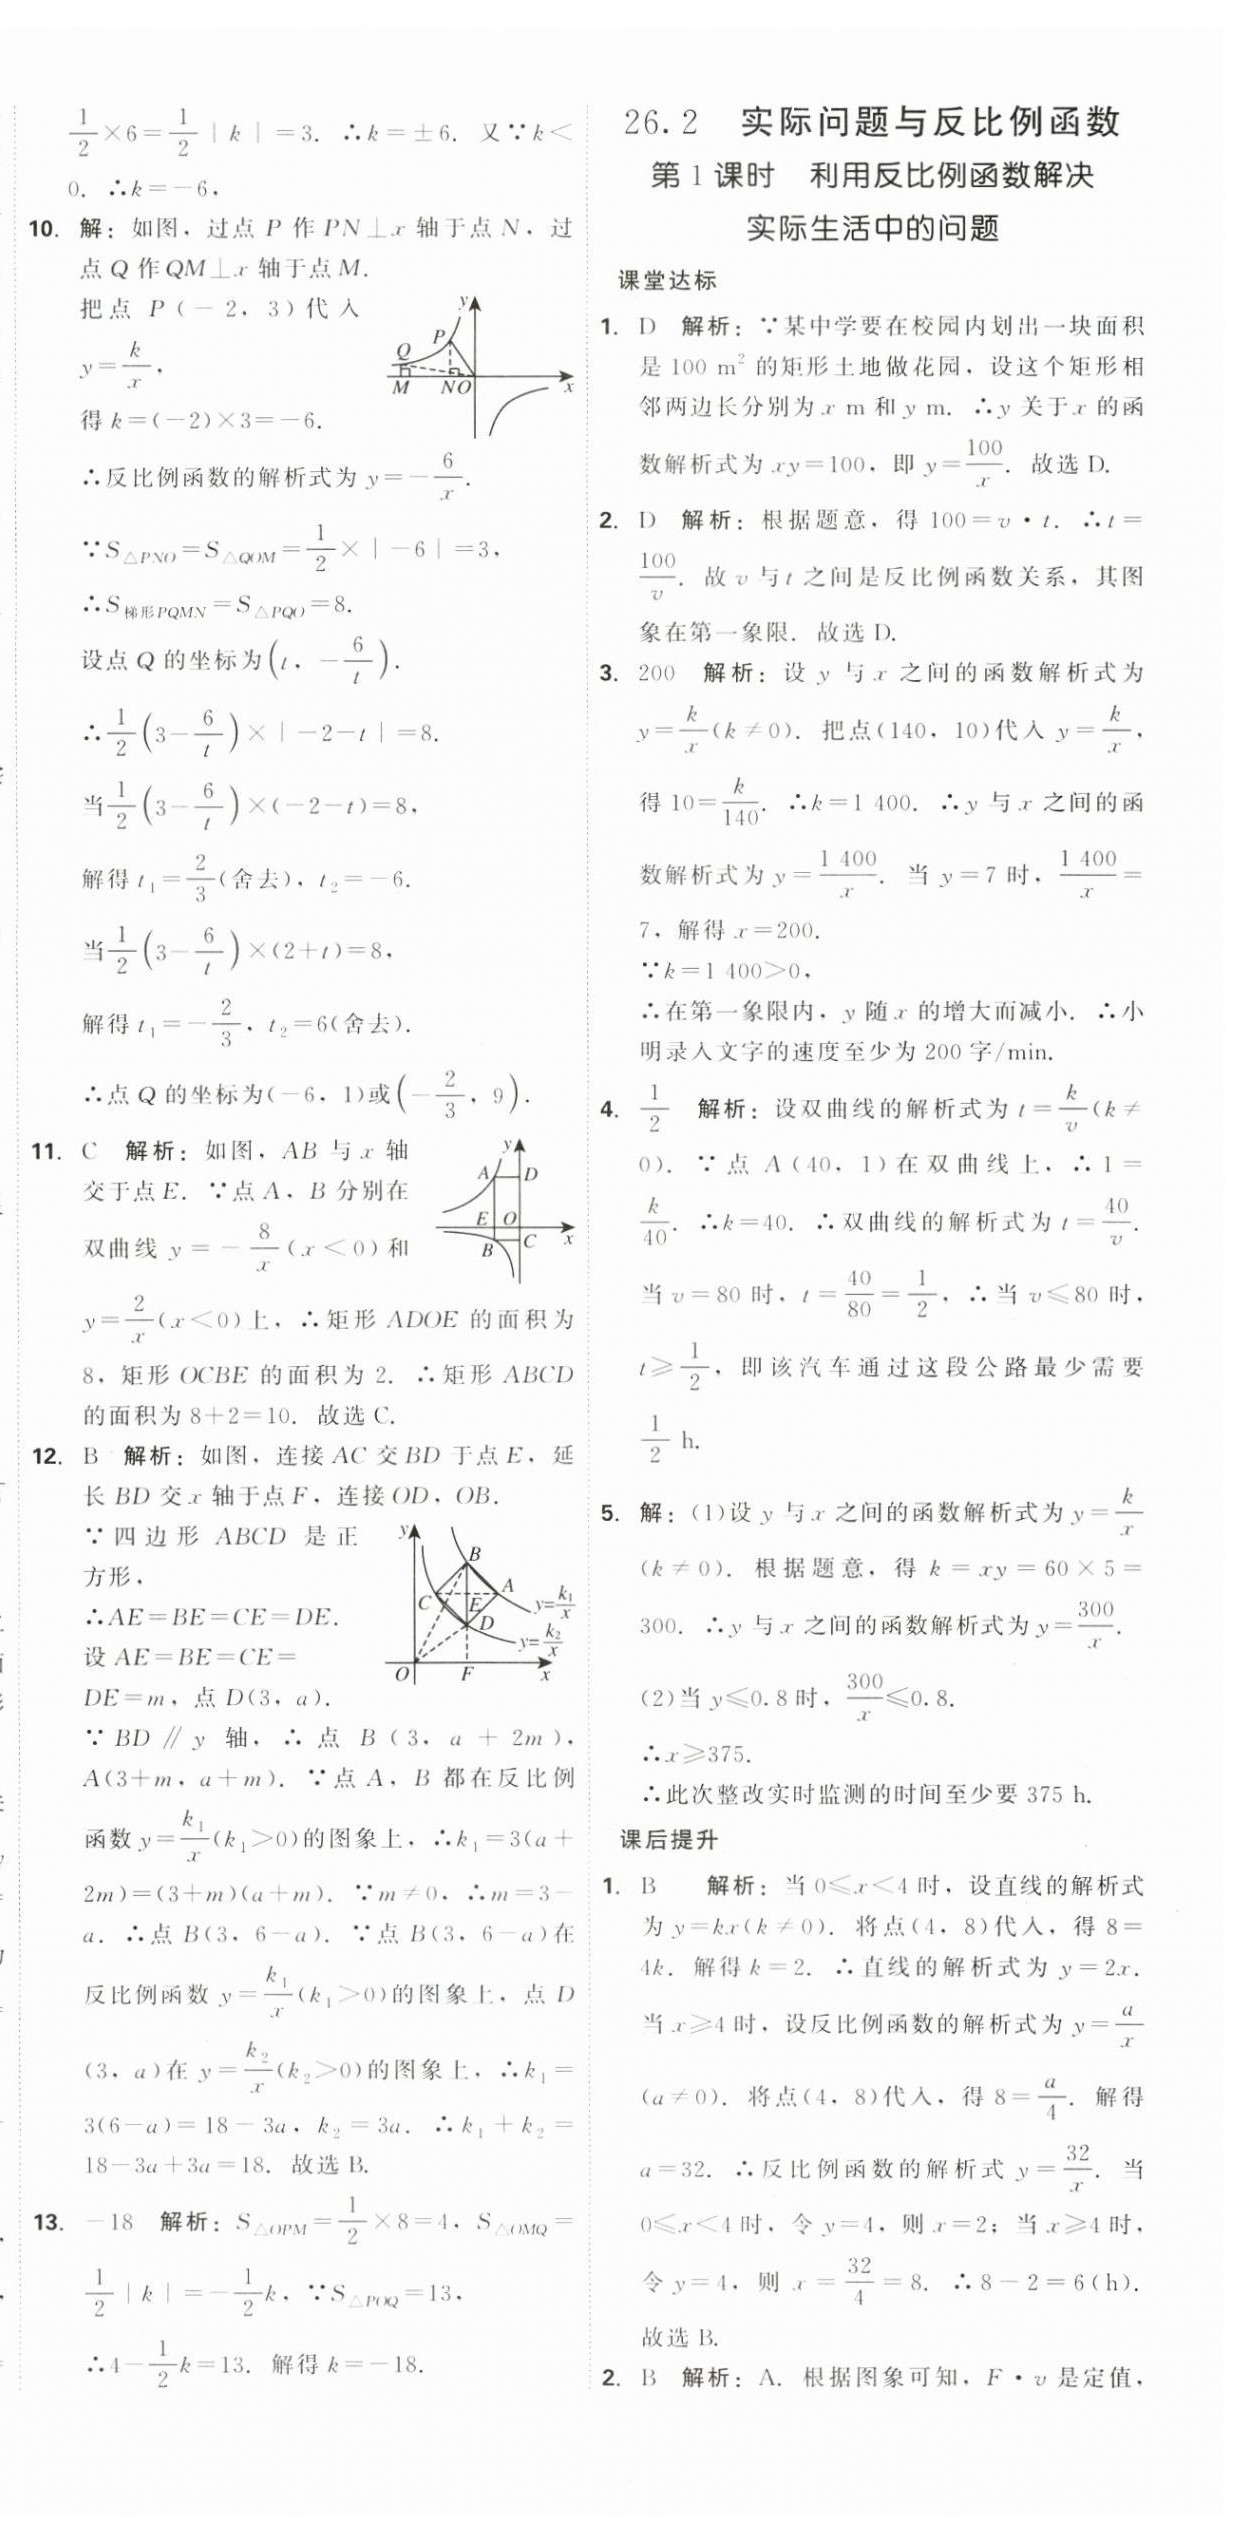 1/2×6=1/2|k|=3. ∴k=±6. 又∵k<
0. ∴k=-6,
10. 解：如图，过点 P 作 PN⊥x 轴于点 N，过
点 Q 作 QM⊥x 轴于点 M.
把点 P(-2，3)代入
y=k/x，
得 k=(-2)×3=-6.
∴反比例函数的解析式为 y=-6/x.
∵S△PNO=S△QOM=1/2×|-6|=3，
∴S梯形PQMN=S△PQO=8.
设点 Q 的坐标为(t，-6/t).
∴1/2(3-6/t)×|-2-t|=8.
当1/2(3-6/t)×(-2-t)=8，
解得 t₁=2/3(舍去)，t₂=-6.
当1/2(3-6/t)×(2+t)=8，
解得 t₁=-2/3，t₂=6(舍去).
∴点 Q 的坐标为(-6，1)或(-2/3，9).
y
P
Q
M
N
O
x
11. C 解析：如图，AB 与 x 轴
交于点 E. ∵点 A，B 分别在
双曲线 y=-8/x(x<0)和
y=2/x(x<0)上，∴矩形 ADOE 的面积为
8，矩形 OCBE 的面积为 2. ∴矩形 ABCD
的面积为 8+2=10. 故选 C.
y
A
D
E
O
B
C
x
12. B 解析：如图，连接 AC 交 BD 于点 E，延
长 BD 交 x 轴于点 F，连接 OD，OB.
∵四边形 ABCD 是正
方形，
∴AE=BE=CE=DE.
设 AE=BE=CE=
DE=m，点 D(3，a).
∵BD∥y 轴，∴点 B(3，a+2m)，
A(3+m，a+m). ∵点 A，B 都在反比例
函数 y=k₁/x(k₁>0)的图象上，∴k₁=3(a+
2m)=(3+m)(a+m). ∵m≠0，∴m=3-
a. ∴点 B(3，6-a). ∵点 B(3，6-a)在
反比例函数 y=k₁/x(k₁>0)的图象上，点 D
(3，a)在 y=k₂/x(k₂>0)的图象上，∴k₁=
3(6-a)=18-3a，k₂=3a. ∴k₁+k₂=
18-3a+3a=18. 故选 B.
y
B
C
A
E
D
y=k₁/x
y=k₂/x
O
F
x
13. -18 解析：S△OPM=1/2×8=4，S△OMQ=
1/2|k|=-1/2k，∵S△POQ=13，
∴4-1/2k=13. 解得 k=-18.
26.2 实际问题与反比例函数
第 1 课时 利用反比例函数解决
实际生活中的问题
课堂达标
1. D 解析：∵某中学要在校园内划出一块面积
是 100 m² 的矩形土地做花园，设这个矩形相
邻两边长分别为 x m 和 y m. ∴y 关于 x 的函
数解析式为 xy=100，即 y=100/x. 故选 D.
2. D 解析：根据题意，得 100=v·t. ∴t=
100/v. 故 v 与 t 之间是反比例函数关系，其图
象在第一象限. 故选 D.
3. 200 解析：设 y 与 x 之间的函数解析式为
y=k/x(k≠0). 把点(140，10)代入 y=k/x，
得 10=k/140. ∴k=1 400. ∴y 与 x 之间的函
数解析式为 y=1 400/x. 当 y=7 时，1 400/x=
7，解得 x=200.
∵k=1 400>0，
∴在第一象限内，y 随 x 的增大而减小. ∴小
明录入文字的速度至少为 200 字/min.
4. 1/2 解析：设双曲线的解析式为 t=k/v(k≠
0). ∵点 A(40，1)在双曲线上，∴1=
k/40. ∴k=40. ∴双曲线的解析式为 t=40/v.
当 v=80 时，t=40/80=1/2，∴当 v≤80 时，
t≥1/2，即该汽车通过这段公路最少需要
1/2 h.
5. 解：(1)设 y 与 x 之间的函数解析式为 y=k/x
(k≠0). 根据题意，得 k=xy=60×5=
300. ∴y 与 x 之间的函数解析式为 y=300/x.
(2)当 y≤0.8 时，300/x≤0.8.
∴x≥375.
∴此次整改实时监测的时间至少要 375 h.
课后提升
1. B 解析：当 0≤x<4 时，设直线的解析式
为 y=kx(k≠0). 将点(4，8)代入，得 8=
4k. 解得 k=2. ∴直线的解析式为 y=2x.
当 x≥4 时，设反比例函数的解析式为 y=a/x
(a≠0). 将点(4，8)代入，得 8=a/4. 解得
a=32. ∴反比例函数的解析式 y=32/x. 当
0≤x<4 时，令 y=4，则 x=2；当 x≥4 时，
令 y=4，则 x=32/4=8. ∴8-2=6(h).
故选 B.
2. B 解析：A. 根据图象可知，F·v 是定值，